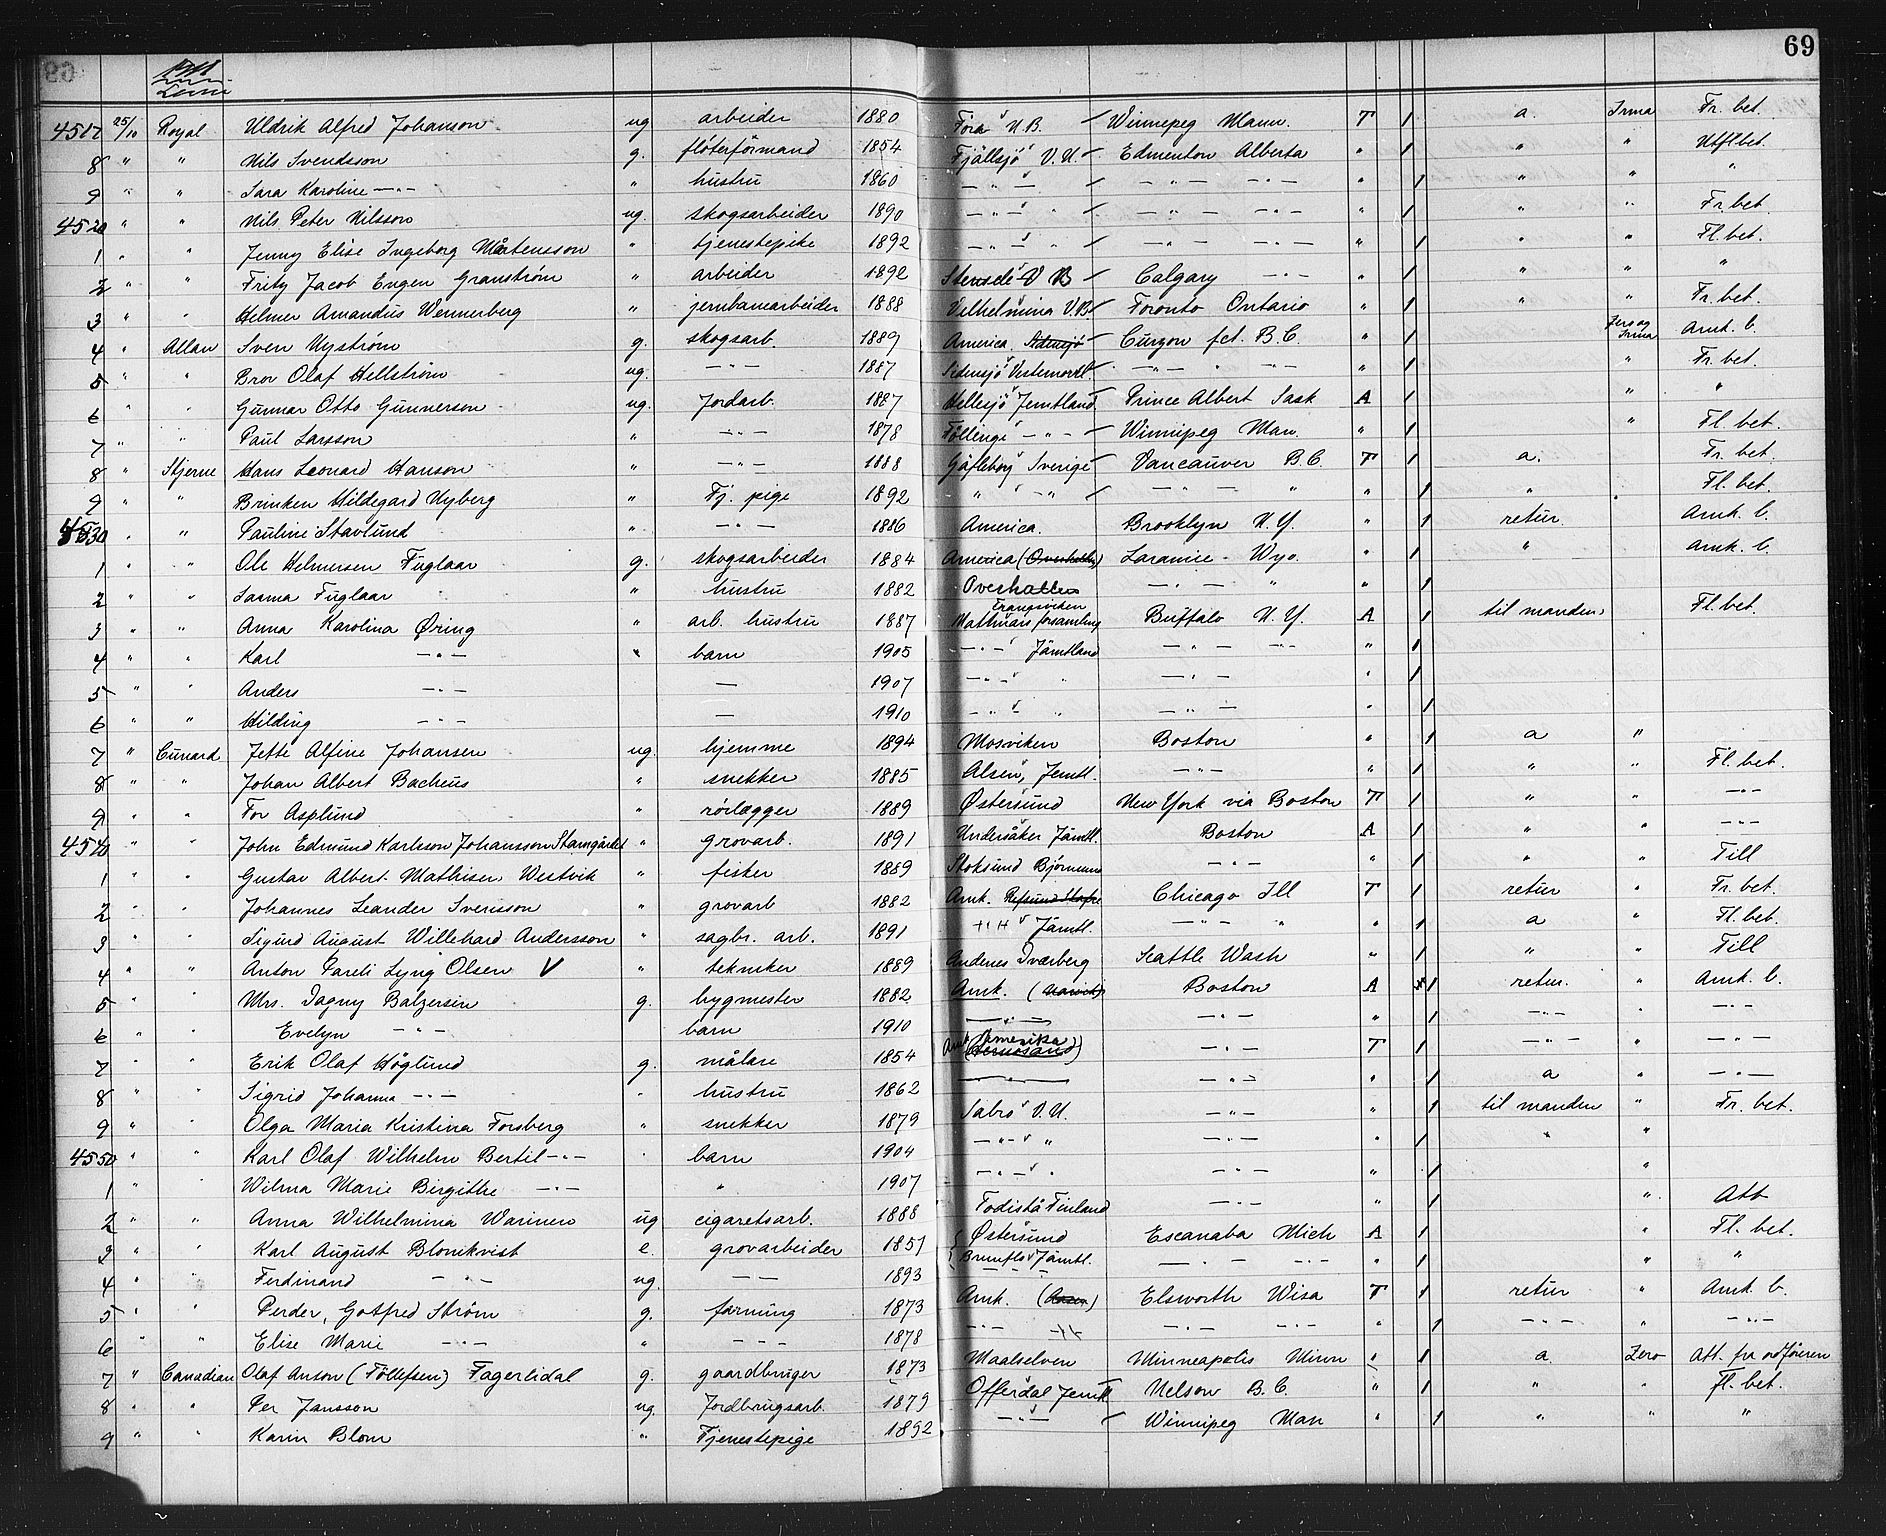 69
1911
4517 25/10 Royal Uldrik Alfred Johanson ug arbeider 1880 Föra N.B. Winnepeg Mann. T 1 a. Irma Fr. bet.
8 " " Nils Svendsson g. fløterformand 1854 Fjällsjö V.N. Edmenton Alberta " 1 " " Utfl bet.
9 " " Sara Karoline —"— " hustru 1860 —"— —"— —"— " 1 " " "
4520 " " Nils Peter Nilsson ug. skogsarbeider 1890 —"— —"— —"— " 1 " " Fr. bet.
1 " " Jenny Elise Ingeborg Mårtensson " tjenestepike 1892 —"— —"— —"— " 1 " " Fl. bet.
2 " " Fritz Jacob Eugen Granström " arbeider 1892 Stensele V B Calgary —"— " 1 " " "
3 " " Helmer Amandus Wennerberg " jernbanearbeider 1888 Vilhelmina V.B. Toronto Ontario " 1 " " Fr. bet.
4 " Allan Sven Nyström g. skogsarb. 1889 America. Curzon fct. B.C. " 1 Zero og Irma Amk. b.
5 " " Bror Olaf Hellström ug. —"— 1887 Sidensjö Vesternorrl. —"— " —"— " 1 " Fr. bet.
6 " " Gunnar Otto Gunnerson ug. Jordarb. 1887 Hellesjö Jemtland Prince Albert Sask A 1 " "
7 " " Paul Larsson " —"— 1878 Föllinge —"— Winnipeg Man. " 1 " Fl. bet.
8 " Stjerne Hans Leonard Hanson " —"— 1888 Gäfleborg Sverige Vancauver B.C. T 1 a. Fr. bet.
9 " " Brinken Hildegard Nyberg " Tj. pige 1892 " —"— " —"— " " 1 " Fl. bet.
4530 " " Pauline Stavlund " —"— 1886 America. Brooklyn N.Y. " 1 retur Amk. b.
1 " " Ole Helmersen Fuglaar g. skogsarbeider 1884 America (Overhallen) Laramie - Wyo. " 1 " Amk. b.
2 " " Saama Fuglaar " hustru 1882 Overhallen —"— " " 1
3 " " Anna Karolina Øring " arb. hustru 1887 Mattmars forsamling Buffalo N.Y. A 1 til manden Fl. bet.
4 " " Karl —"— " barn 1905 —"— Jämtland —"— —"— " 1
5 " " Anders —"— — 1907 —"— " —"— " 1
6 " " Hilding —"— — 1910 —"— " —"— 1
7 " Cunard Jette Alfine Johansen ug. hjemme 1894 Mosviken Boston " 1 a "
8 " " Johan Albert Bacheus " snekker 1885 Alsen, Jemtl. —"— " 1 " " Fl. bet.
9 " " Tor Asplund " rörlægger 1889 Østersund New York via Boston T 1 " " —"—
4540 " " John Edmund Karlsson Johansson Stamgårdet " grovarb. 1891 Undersåker Jämtl. Boston A 1 " " —"—
1 " " Gustav Albert Mathisen Westvik " fisker 1889 Stoksund Bjørnenes —"— " 1 " " Till
2 " " Johannes Leander Sverisson " grovarb 1882 Amk. Chicago Ill T 1 retur " Fr. bet.
3 " " Sigurd August Willehard Andersson " sagbr. arb. 1891 Jämtl. —"— " " 1 a " Fl. bet.
4 " " Anton Pareli Lyng Olsen V " tekniker 1889 Andenes Dværberg Seattle Wash " 1 " " Till
5 " " Mrs. Dagny Balzersen g. bygmester 1882 Amk. (Narvik) Boston A 1 retur. " Amk. b.
6 " " Evelyn —"— barn 1910 —"— —"— " 1 —"— " —"—
7 " " Erik Olaf Höglund g. målare 1854 Amk (Amerika Hernösand) —"— T 1 —"— " —"—
8 " " Sigrid Johanna —"— " hustru 1862 —"— —"— " 1 a " —"—
9 " " Olga Maria Kristina Forsberg " snekker 1879 Säbrå V.N. —"— " 1 til manden " Fr. bet.
4550 " " Karl Olaf Wilhelm Bertil —"— " barn 1904 —"— " —"— " 1 " "
1 " " Wilma Marie Birgitte —"— " 1907 —"— " —"— " 1 "
2 " " Anna Wilhelmina Warinen ug cigaretsarb. 1888 Todistå Finland —"— " 1 " Att
3 " " Karl August Blomkvist e. grovarbeider 1851 Østersund Escanaba Mich A 1 " Fl. bet.
4 " " Ferdinand —"— ug. —— 1893 Brunflo Jämtl. —"— —"— " 1 " "
5 " " Perder, Gotfred Strøm g. farming 1873 Amk. Elsworth Wisa T 1 retur " Amk. b.
6 " " Elise Marie —"— " —"— 1878 —"— —"— —"— " 1 —"— " —"—
7 " Canadian Olaf Anson (Töllefsen) Fagerlidal g. gaardbruger 1873 Maalselven Minneapolis Minn " 1 a. Zero Att. fra ordføreren
8 " " Per Jansson ug. Jordbrugsarb. 1879 Offerdal Jemtl Nelson B.C. " 1 " " fl. bet.
9 " " Karin Blom " Tjenestepige 1892 —"— Winnipeg Man " 1 " " "